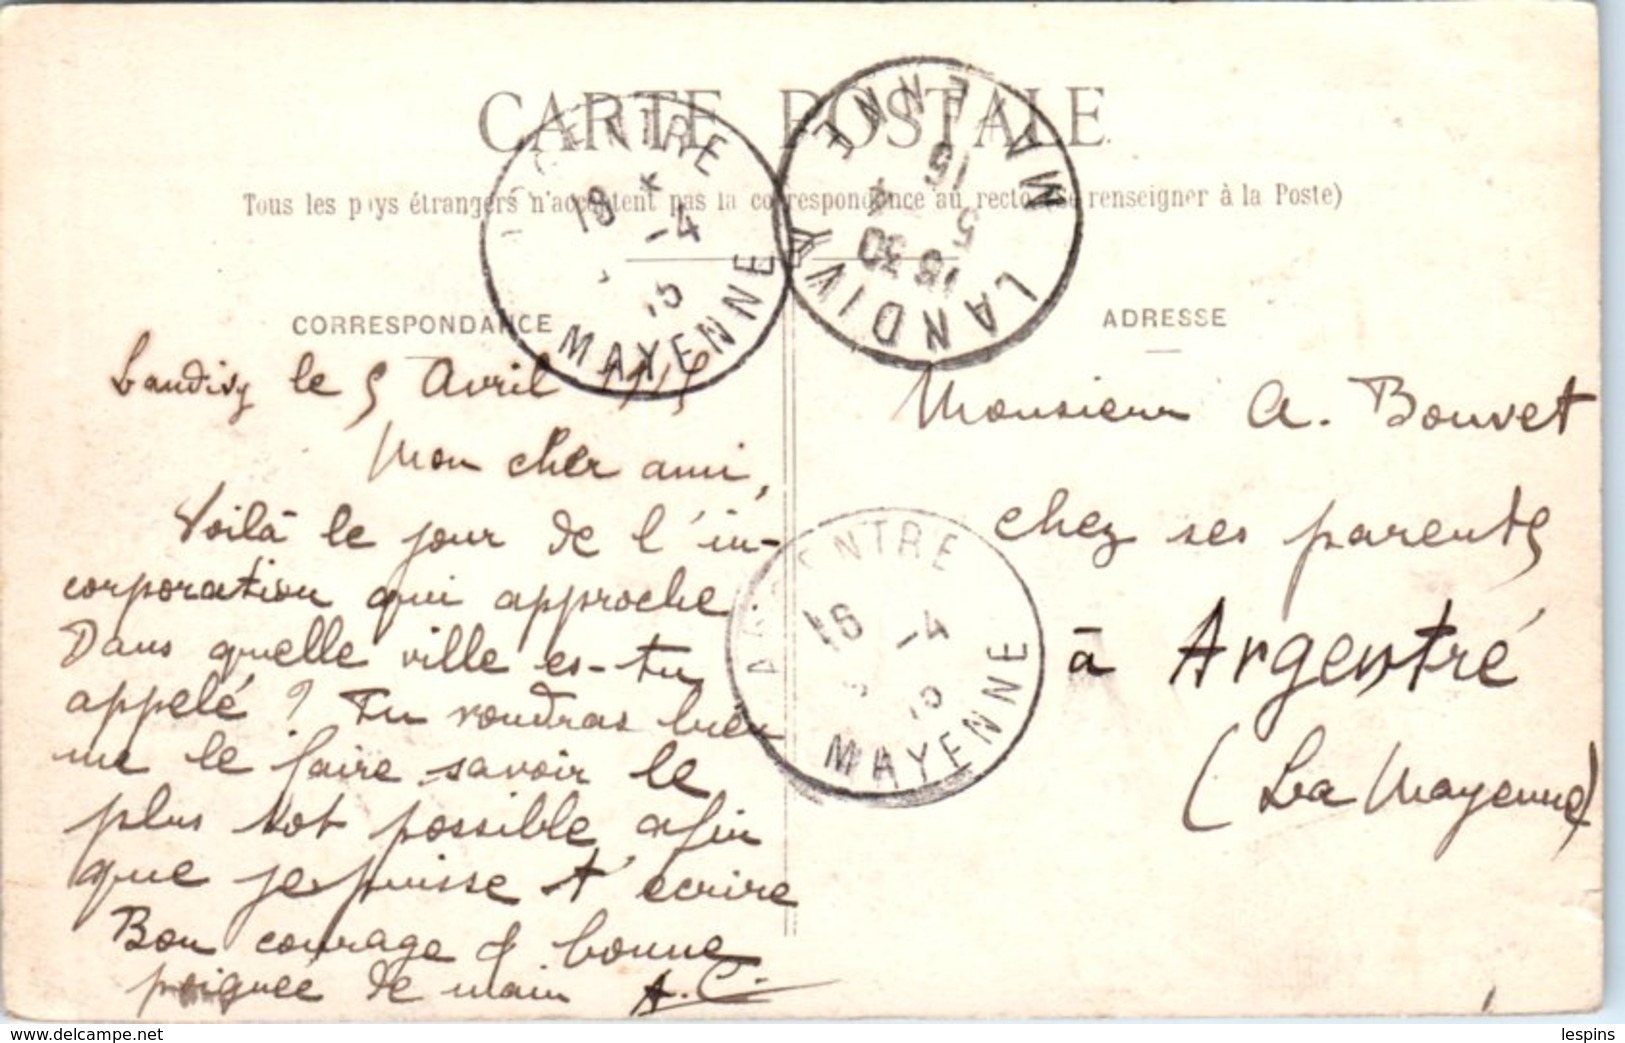 CARTE POSTALE
Tous les pays étrangers n'acceptent pas la correspondance au recto (se renseigner à la Poste)
CORRESPONDANCE
Landivy le 5 Avril 1915
Mon cher ami,
Voilà le jour de l'in-
corporation qui approche
Dans quelle ville es-tu
appelé ? Tu voudras bien
me le faire savoir le
plus tot possible afin
que je puisse t'écrire
Bon courage & bonne
poignée de main A.C.
ADRESSE
Monsieur A. Bouvet
chez ses parents
à Argentré
(La Mayenne)
ARGENTRE
18 -4
15
MAYENNE
LANDIVY MAYENNE
15 30
5 4
15
ARGENTRE
16 -4
15
MAYENNE
delcampe.net
lespins